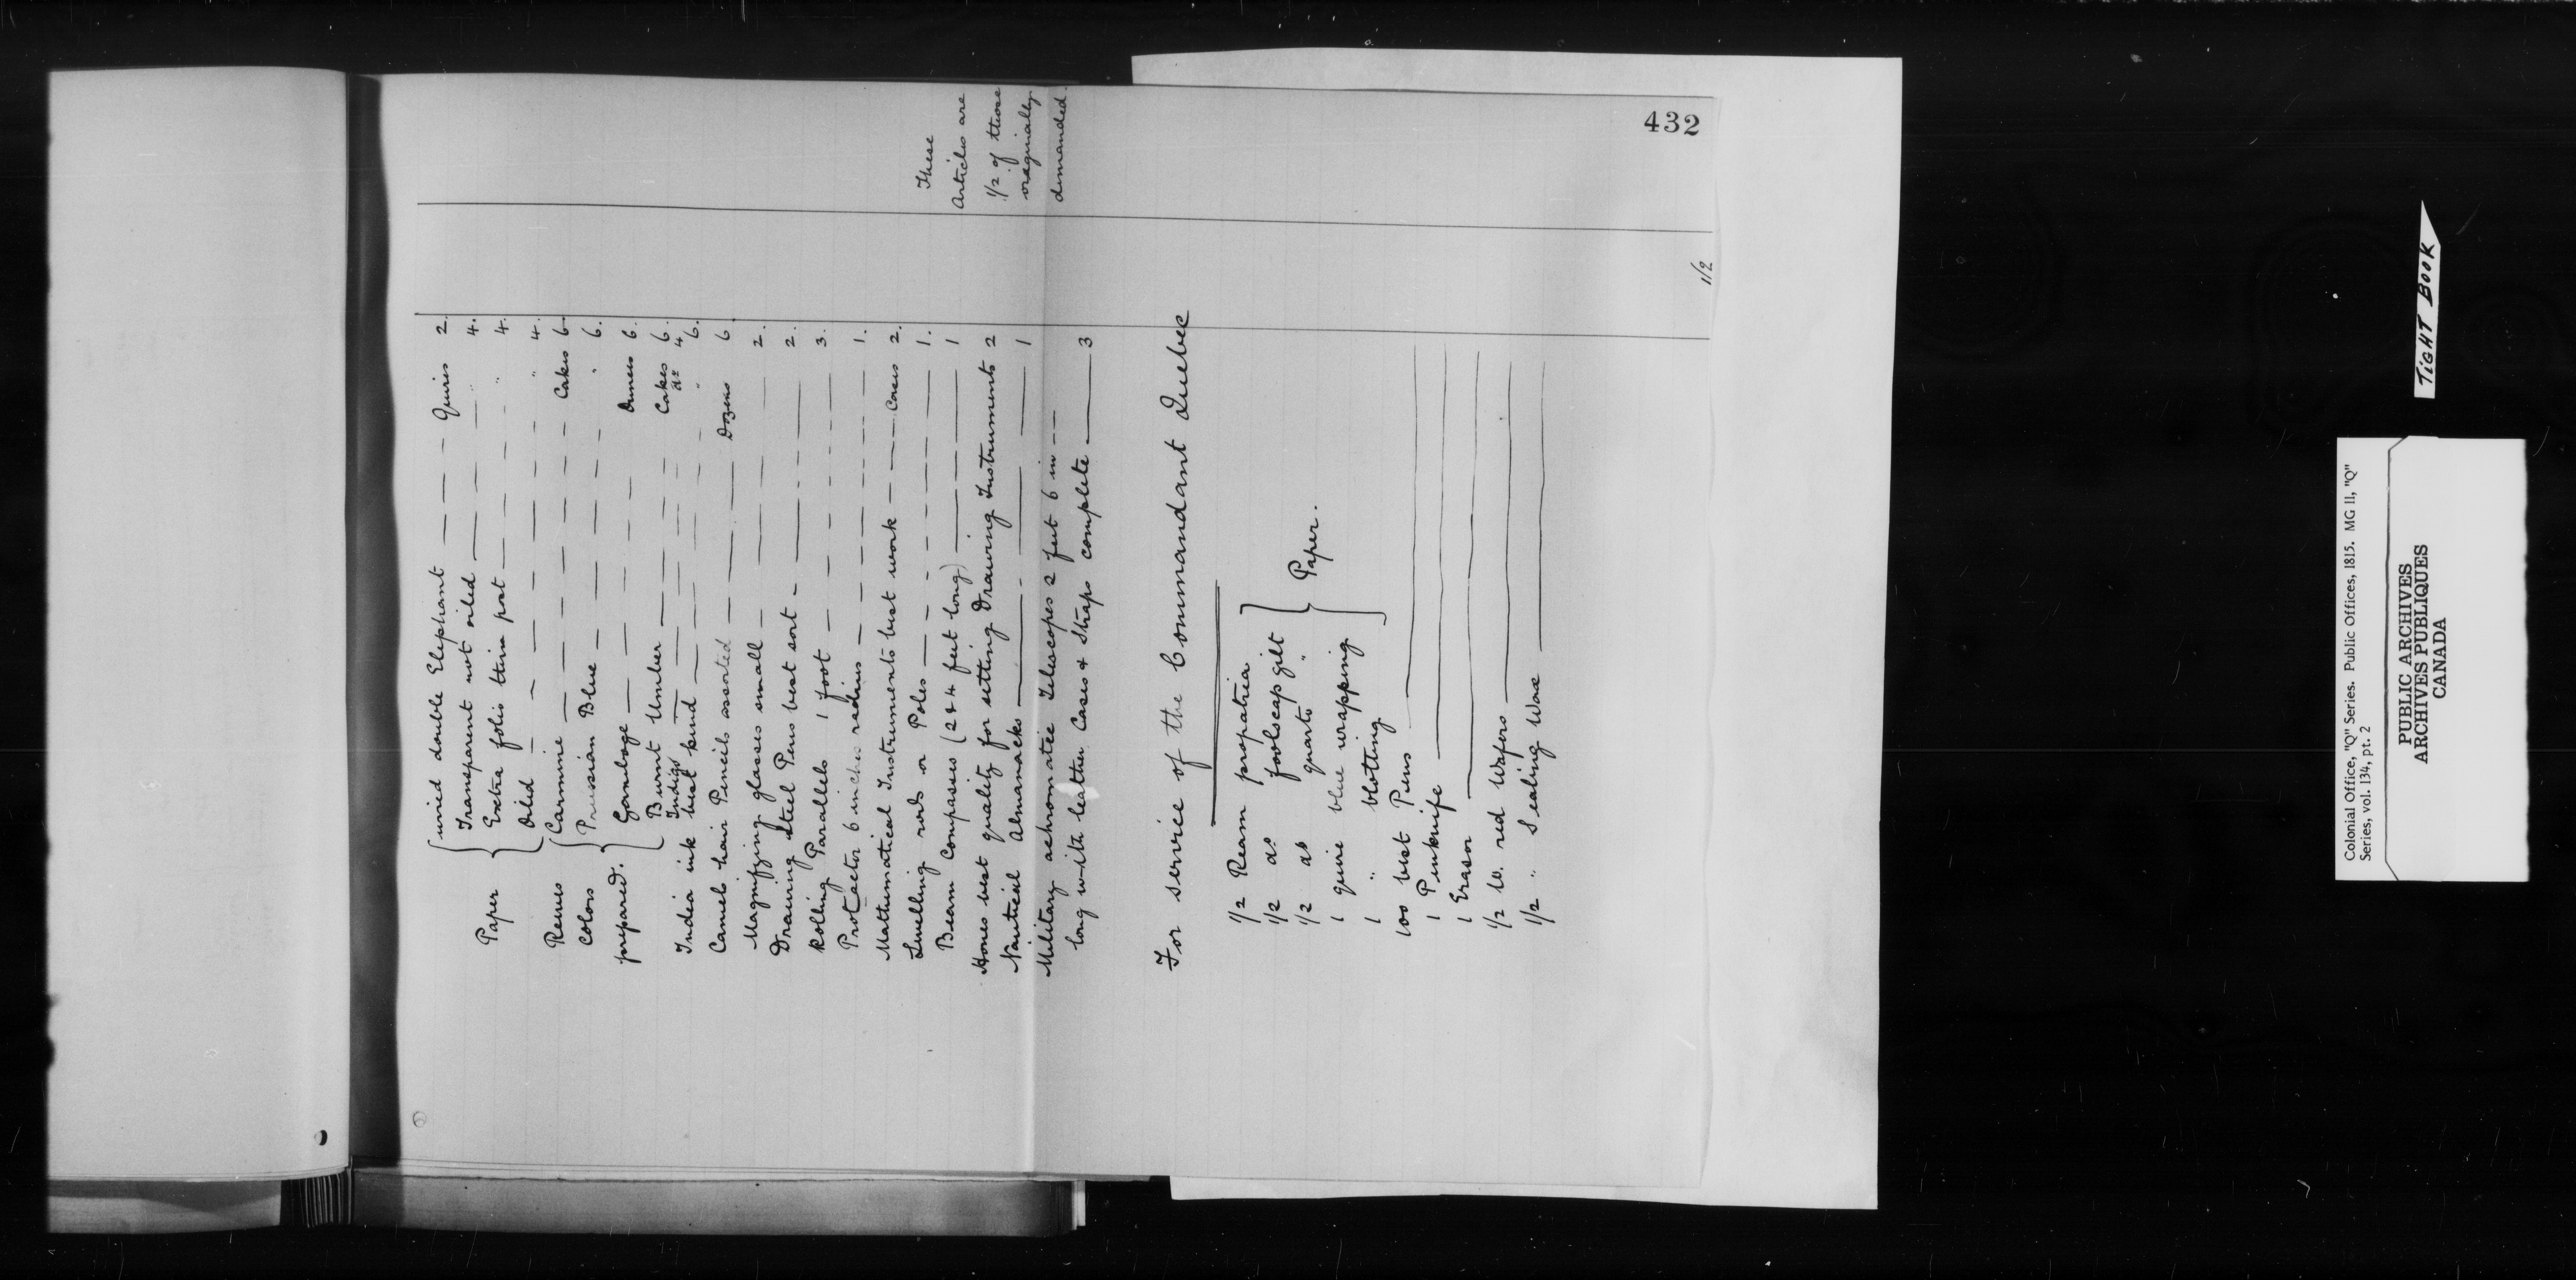 432
wired double Elephant — — — Quires 2.
Paper Transparent not oiled — — — " 4.
Extra folio thin post — — — " 4.
Oiled — — — " 4.
Reeves Carmine — — — Cakes 6
Colors Prussian Blue — — — " 6.
prepared. Gamboge — — — Ounces 6.
Burnt Umber — — — Cakes 6.
Indigo — — — do 4
India ink best kind — — — " 6.
Camels hair Pencils assorted — — — Dozens 6
Magnifying glasses small — — — 2.
Drawing steel Pens best sort — — — 2.
Rolling Parallels 1 foot — — — 3.
Protractor 6 inches radius — — — 1.
Mathematical Instruments best work — — — Cases 2.
Levelling rods or Poles — — — 1.
Beam Compasses (2 & 4 feet long) — — — 1
Hones best quality for setting Drawing Instruments 2
Nautical Almanacks — — — 1
Military achromatic Telescopes 2 feet 6 in — —
long with leather Cases & Straps complete — 3
These
Articles are
1/2 of those
originally
demanded.
For service of the Commandant Quebec
1/2 Ream propatria
1/2 do foolscap gilt
1/2 do quarto "
Paper.
1 quire blue wrapping
1 " blotting
100 best Pens
1 Penknife
1 Eraser
1/2 lb. red Wafers
1/2 " Sealing Wax
1/2
TIGHT BOOK
Colonial Office, "Q" Series. Public Offices, 1815. MG 11, "Q"
Series, vol. 134, pt. 2
PUBLIC ARCHIVES
ARCHIVES PUBLIQUES
CANADA